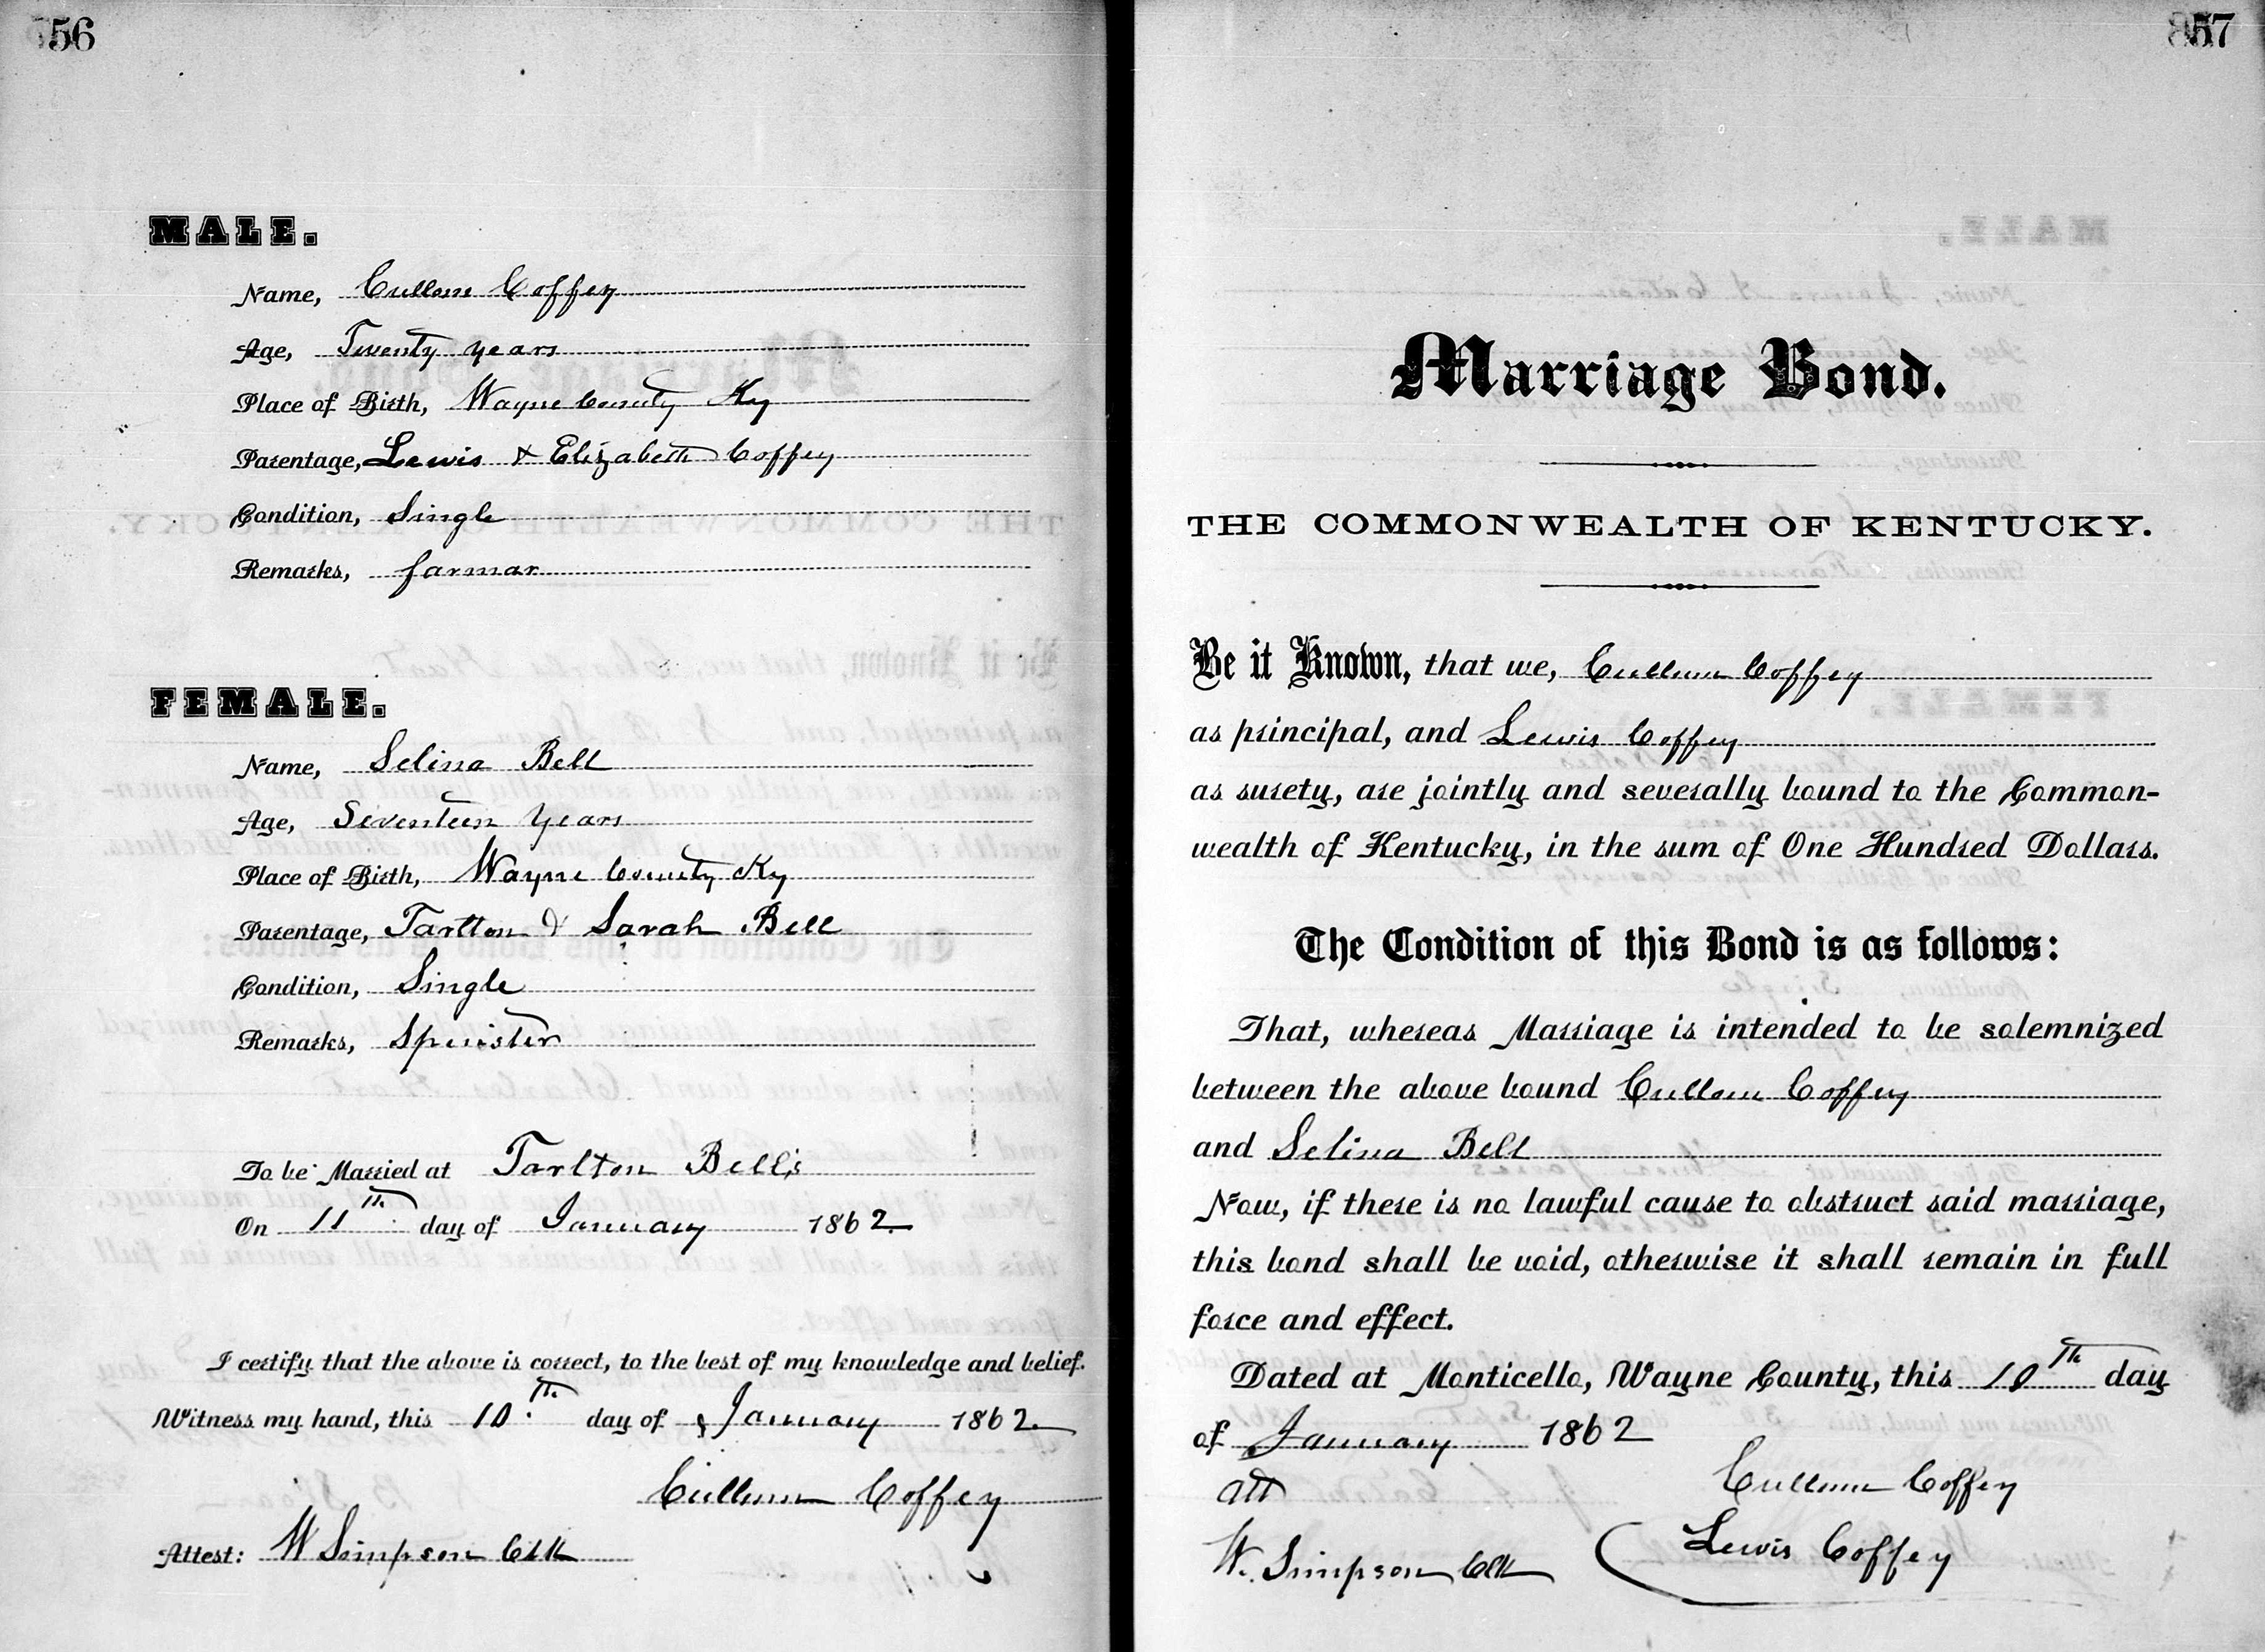 56
MALE.
Name, Cullom Coffey
Age, Twenty years
Place of Birth, Wayne County Ky
Parentage, Lewis & Elizabeth Coffey
Condition, Single
Remarks, farmar
FEMALE.
Name, Selina Bell
Age, Seventeen Years
Place of Birth, Wayne County Ky
Parentage, Tarlton & Sarah Bell
Condition, Single
Remarks, Spinister
To be Married at Tarlton Bell's
On 11th day of January 1862
I certify that the above is correct, to the best of my knowledge and belief.
Witness my hand, this 10th day of January 1862
Cullom Coffey
Attest: W Simpson Clk
57
Marriage Bond.
THE COMMONWEALTH OF KENTUCKY.
Be it Known, that we, Cullom Coffey
as principal, and Lewis Coffey
as surety, are jointly and severally bound to the Common-
wealth of Kentucky, in the sum of One Hundred Dollars.
The Condition of this Bond is as follows:
That, whereas Marriage is intended to be solemnized
between the above bound Cullom Coffey
and Selina Bell
Now, if there is no lawful cause to obstruct said marriage,
this bond shall be void, otherwise it shall remain in full
force and effect.
Dated at Monticello, Wayne County, this 10th day
of January 1862
att Cullom Coffey
W. Simpson Clk Lewis Coffey